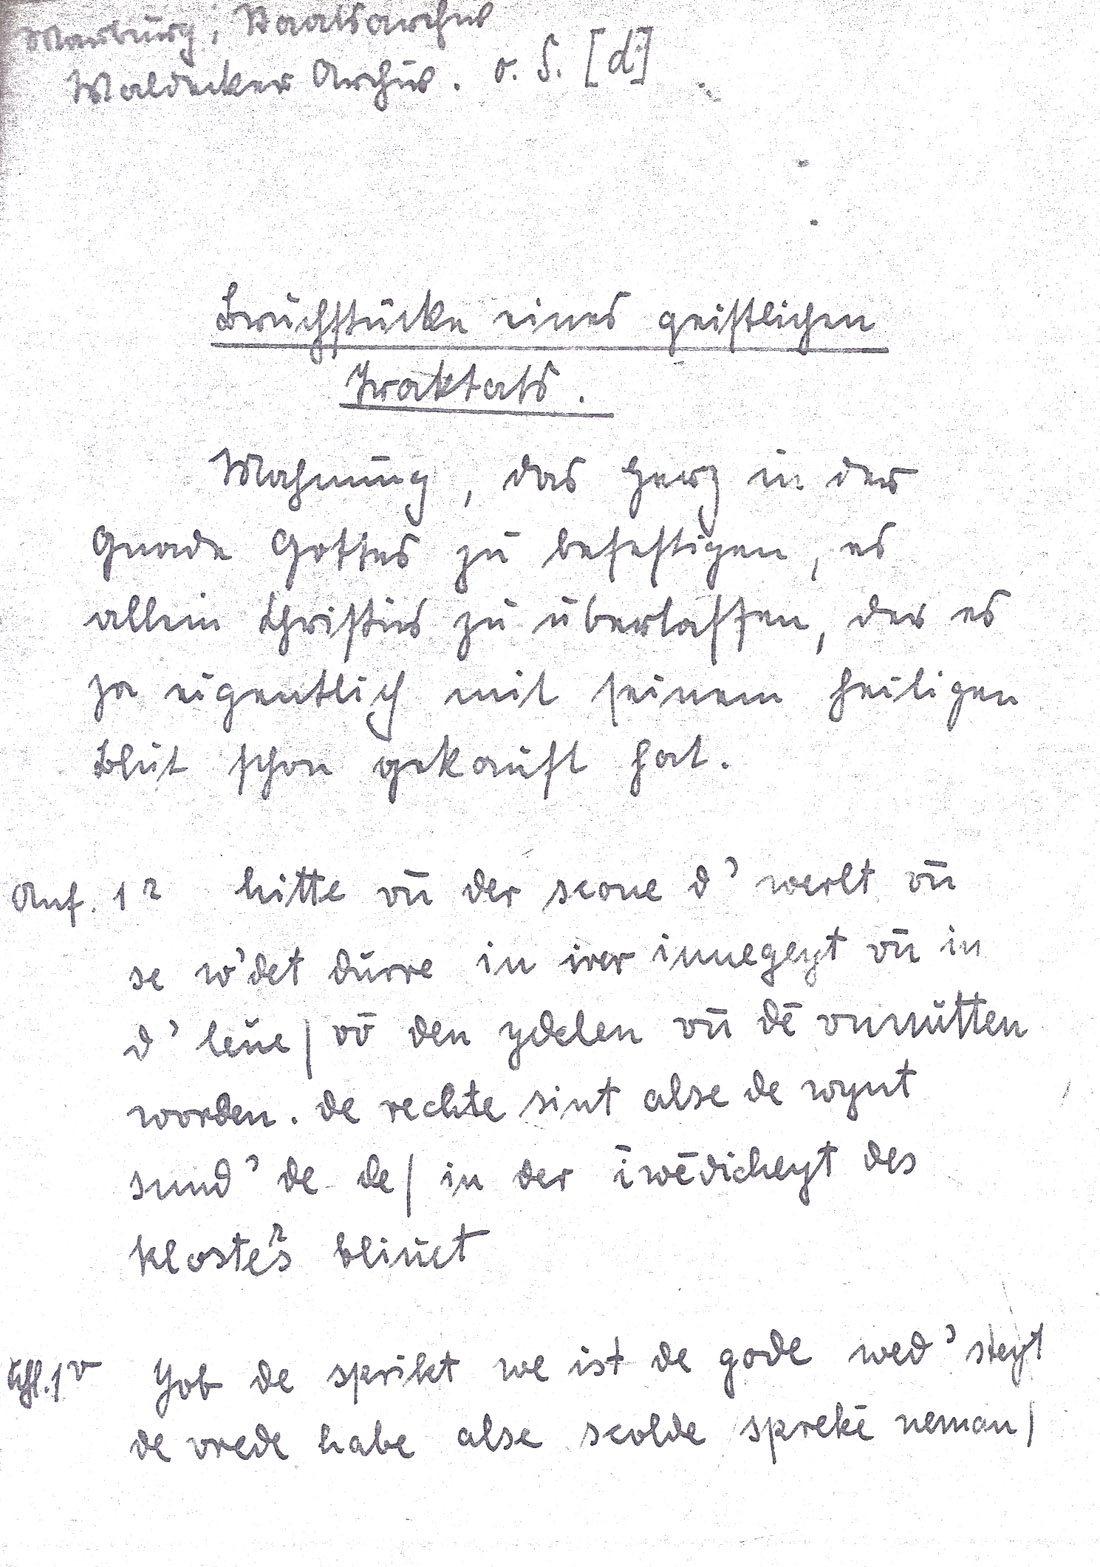 Marburg, Staatsarchiv
Waldecker Archiv. o. S. [d]
Bruchstücke eines geistlichen
Traktats.
Mahnung, das Herz in der
Gnade Gottes zu befestigen, es
allein Christus zu überlassen, der es
ja eigentlich mit seinem heiligen
Blut schon gekauft hat.
Anf. 1r hitte vn̄ der scone d' werlt vn̄
se w'det durre in irer innegeyt vn̄ in
d' leūe | vō den ydelen vn̄ dē vnnutten
worden. de rechte sint alse de wynt
sund' de de | in der īwēdicheyt des
klosters bliuet
Schl. 1v Yob de sprikt we ist de gode wed' steyt
de vrede habe alse scolde sprekē neman |